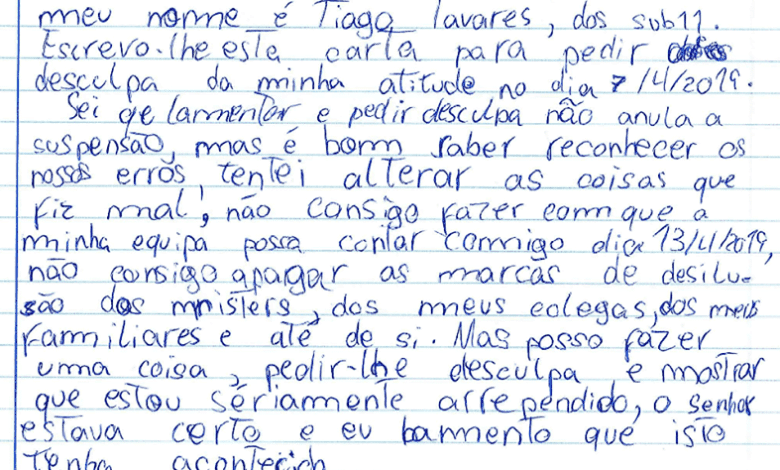 meu nome é Tiago Tavares, dos sub11.
Escrevo-lhe esta carta para pedir
desculpa da minha atitude no dia 7/4/2019.
Sei qe lamentar e pedir desculpa não anula a
suspensão, mas é bom saber reconhecer os
nossos erros, tentei alterar as coisas que
fiz mal, não consigo fazer com que a
minha equipa possa contar comigo dia 13/4/2019,
não consigo apagar as marcas de desilu-
são dos misters, dos meus colegas, dos meus
familiares e até de si. Mas posso fazer
uma coisa, pedir-lhe desculpa e mostrar
que estou sériamente arrependido, o senhor
estava certo e eu lamento que isto
tenha acontecido